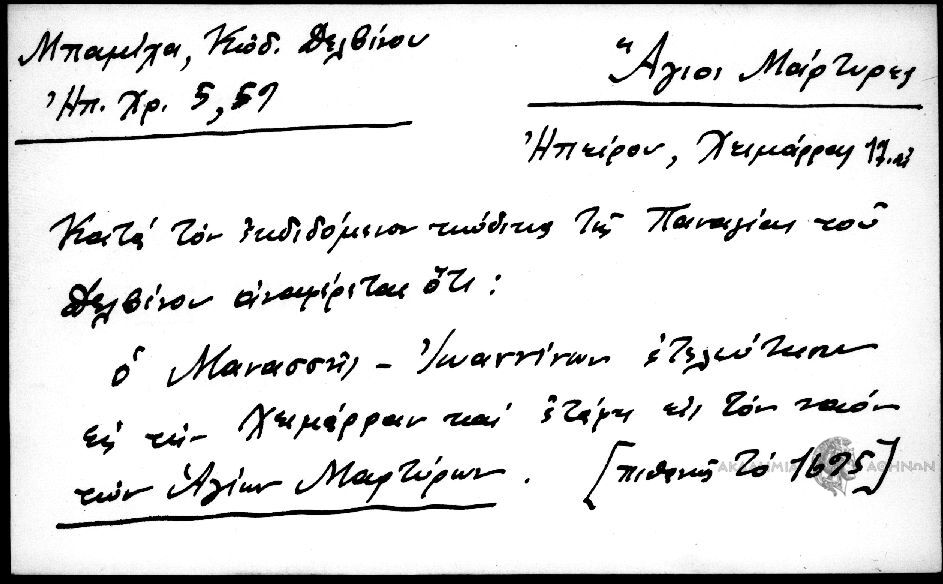 Μπαμίχα, Κώδ. Δελβίνου
Ἠπ. Χρ. 5, 59
Ἅγιοι Μάρτυρες
Ἠπείρου, Χειμάρρας
Κατά τόν ἐκδιδόμενον κώδικα τῆς Παναγίας τοῦ
Δελβίνου ἀναφέρεται ὅτι:
ὁ Μανασσῆς - Ἰωαννίνων ἐτελεύτησεν
εἰς τήν Χειμάρραν καί ἐτάφη εἰς τόν ναόν
τῶν Ἁγίων Μαρτύρων. [πιθανῶς τό 1695]
ΑΚΑΔΗΜΙΑ ΑΘΗΝΩΝ